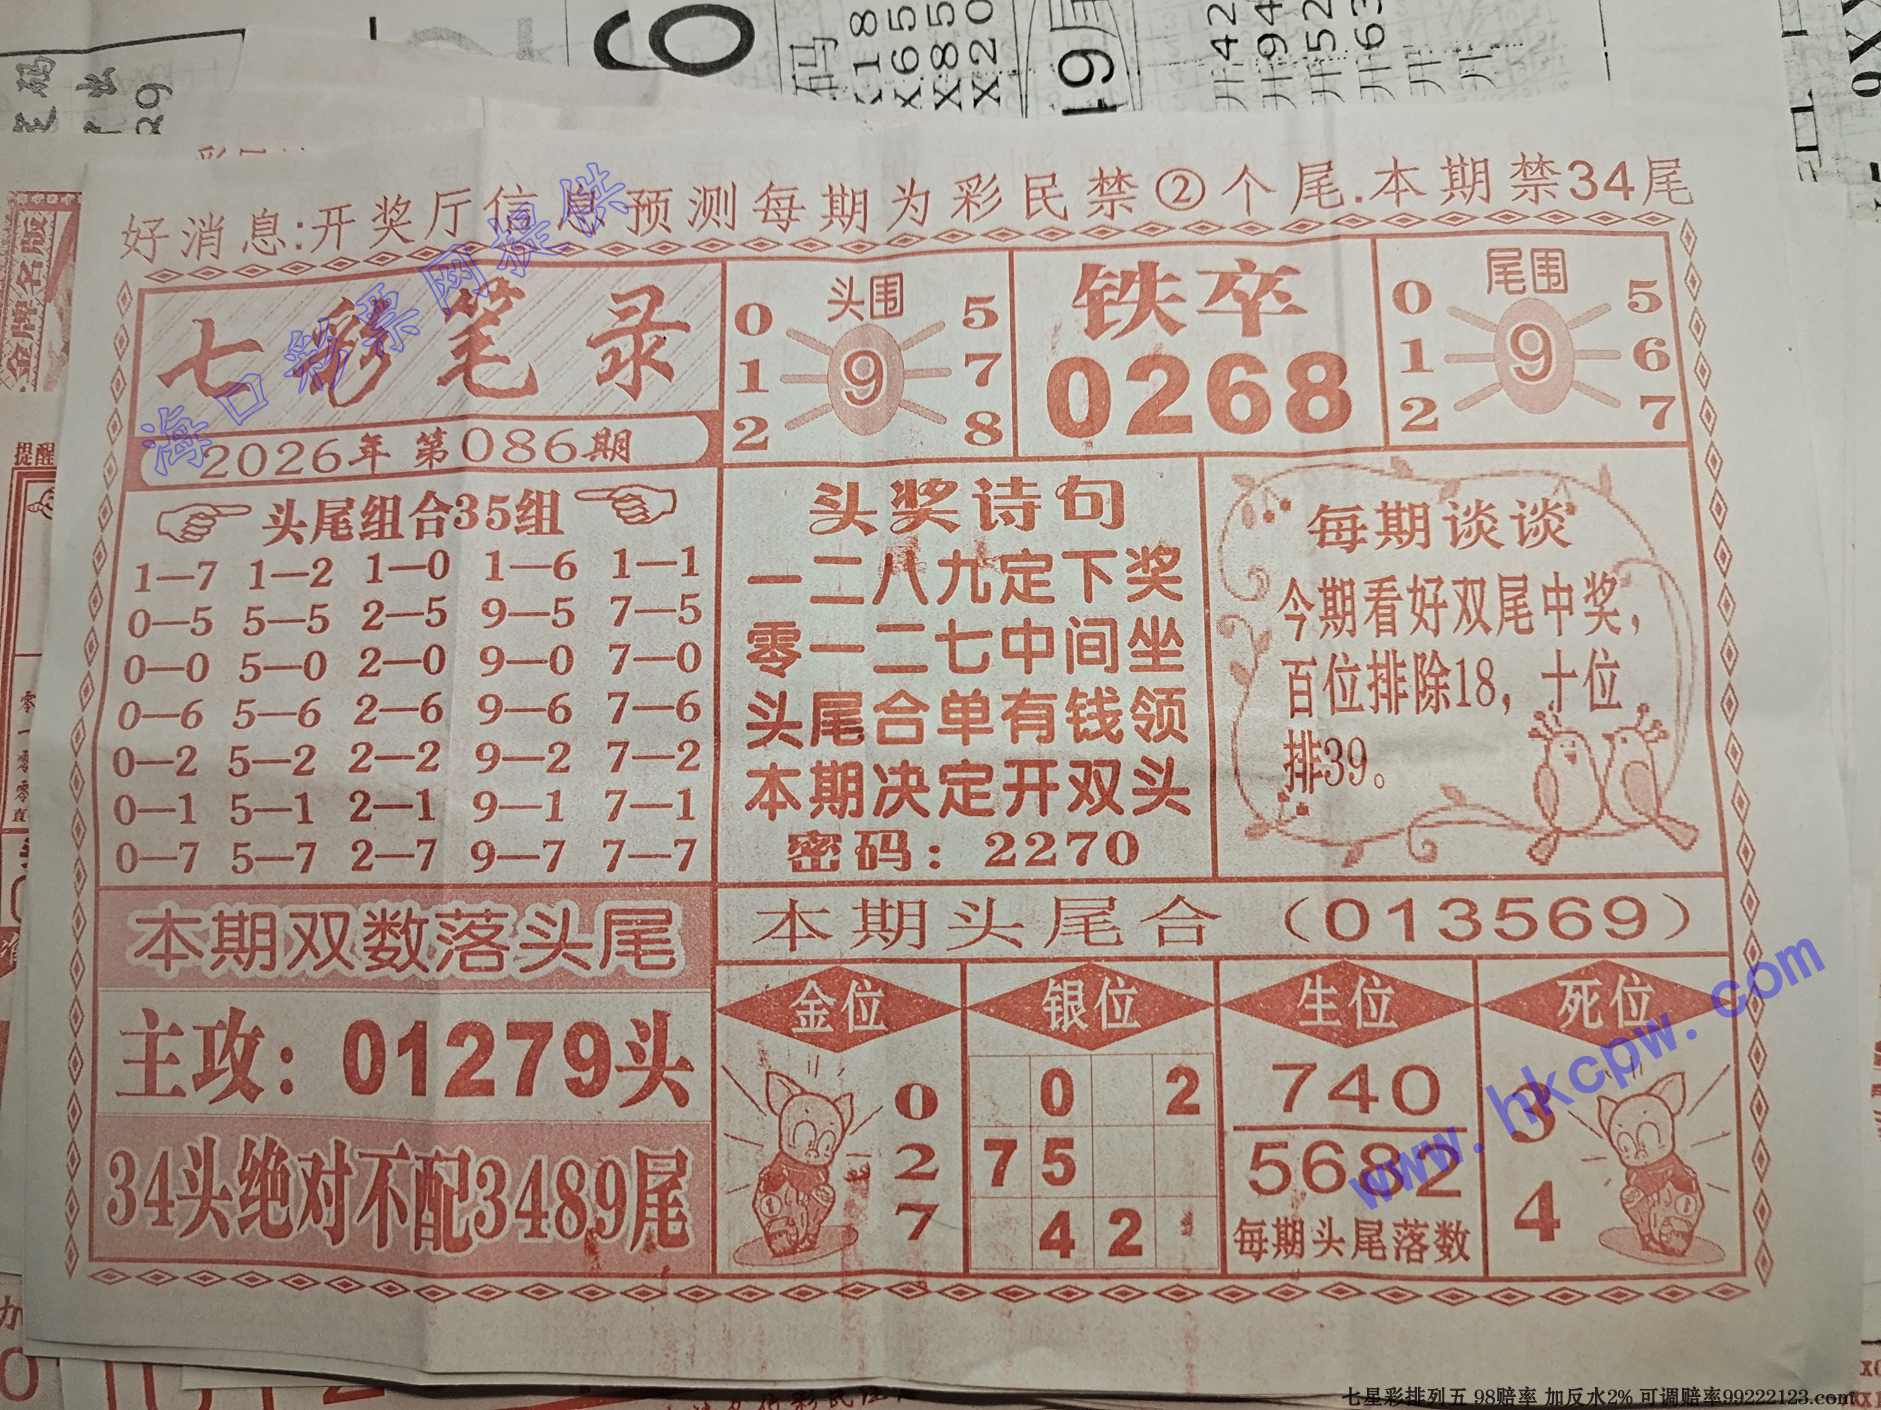 好消息:开奖厅信息预测每期为彩民禁②个尾.本期禁34尾
七彩笔录
2026年 第086期
头围
0 5
1 9 7
2 8
铁卒
0268
尾围
0 5
1 9 6
2 7
头尾组合35组
1—7 1—2 1—0 1—6 1—1
0—5 5—5 2—5 9—5 7—5
0—0 5—0 2—0 9—0 7—0
0—6 5—6 2—6 9—6 7—6
0—2 5—2 2—2 9—2 7—2
0—1 5—1 2—1 9—1 7—1
0—7 5—7 2—7 9—7 7—7
头奖诗句
一二八九定下奖
零一二七中间坐
头尾合单有钱领
本期决定开双头
密码：2270
每期谈谈
今期看好双尾中奖，
百位排除18，十位
排39。
本期双数落头尾
主攻：01279头
34头绝对不配3489尾
本期头尾合（013569）
金位
0
2
7
银位
0 2
7 5
4 2
生位
740
5682
每期头尾落数
死位
3
4
海口彩票网提供
www.hkcpw.com
金牌名版
提醒
码
X18
X65
X85
X20
49尾
开42
开94
开52
开63
29
七星彩排列五 98赔率 加反水2% 可调赔率99222123.com